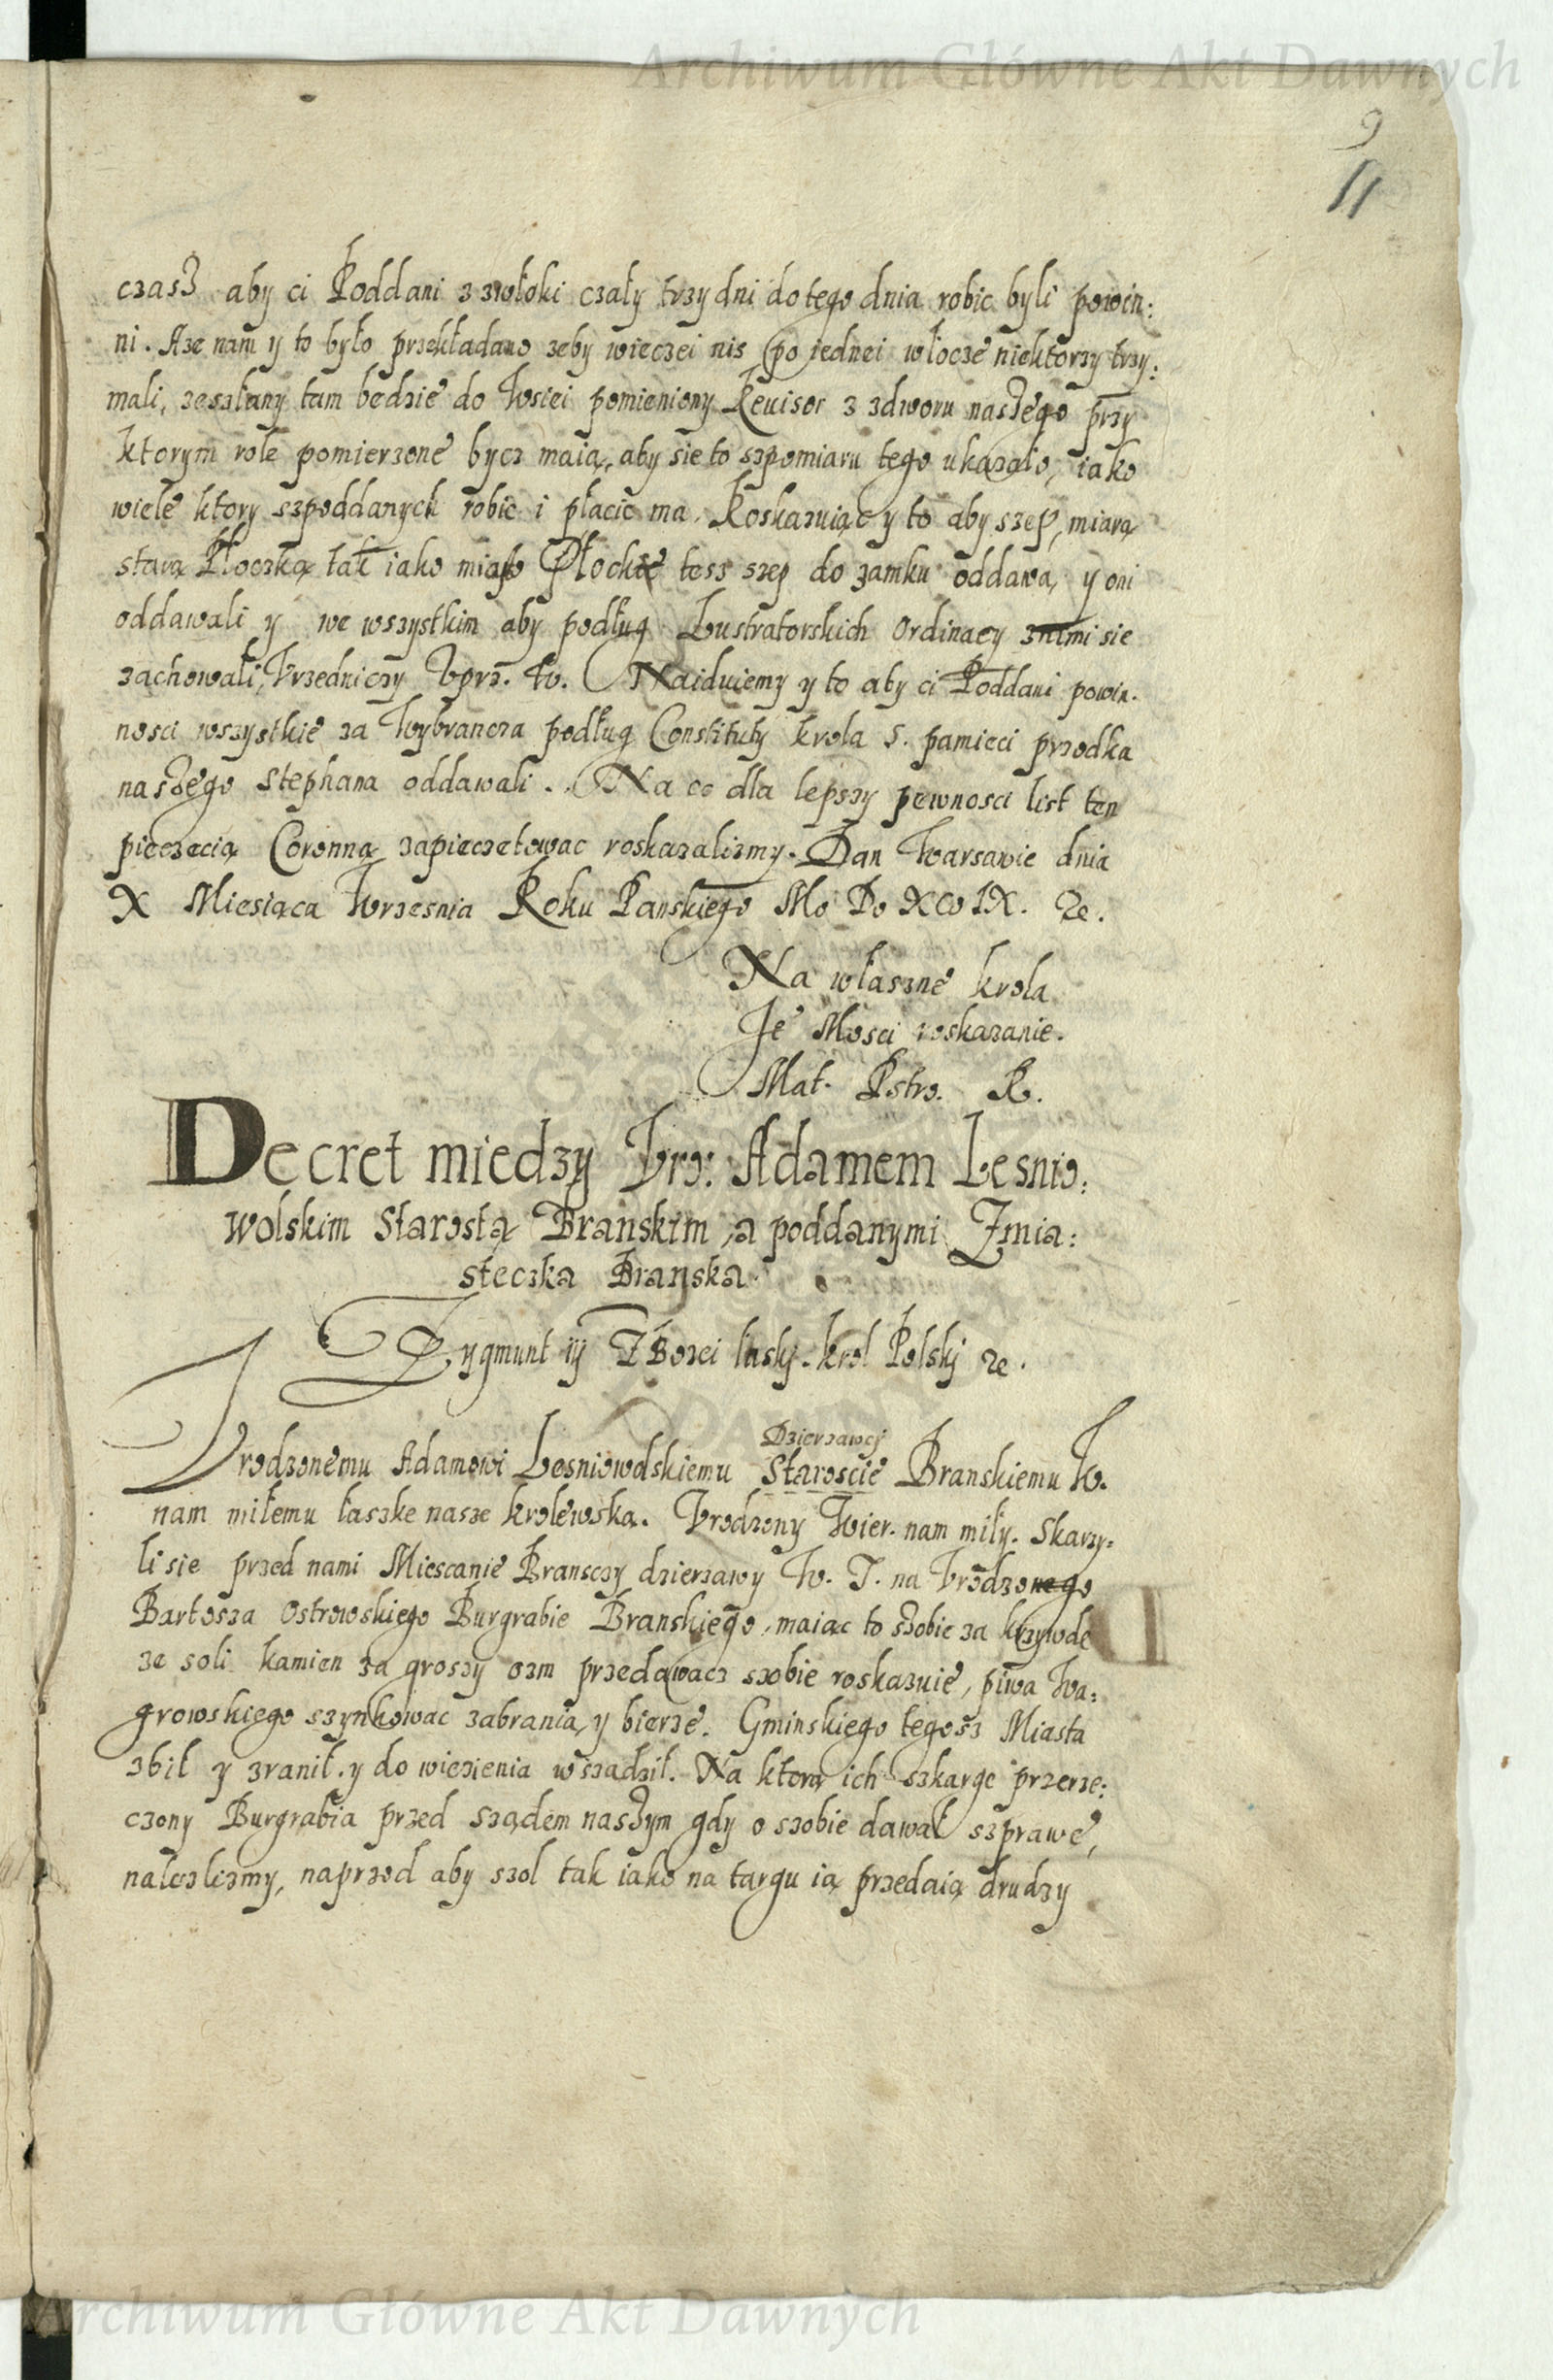 Archiwum Główne Akt Dawnych
9
11
czasz aby ci Poddani z zwłoki czały trzy dni do tego dnia robic byli powin:
ni. Aze nam y to było przekładano zeby wieczei nis po iednei włocze niektorzy trzy:
mali, zeszłany tam bedzie do Wsiei pomieniony Reuisor z zdworu naszego przy
ktorym role pomierzone bycz maią, aby sie to szpomiaru tego ukazało, iako
wiele ktory szpoddanych robic i płacic ma. Roskazuiąc y to aby szep, miarą
starą Płoczką tak iako miasto Płockie tesz szep do zamku oddawa, y oni
oddawali y we wszystkim aby podług Lustratorskich Ordinacy znimi sie
zachowali, Vrzedniczy Vprz. W. Naiduiemy y to aby ci Poddani powin.
nosci wszystkie za Wybrancza podług Constituty krola S. pamieci przodka
naszego Stephana oddawali. Na co dla lepszy pewnosci list ten
pieczecią Coronną zapieczetowac roskazalizmy. Dan Warsawie dnia
X Miesiąca Wrzesnia Roku Panskiego Mo Do XCo IX. Ze.
Na własznė krola
Je Mosci roskazanie.
Mat. Pstro. R.
Decret miedzy Vro: Adamem Lesnio:
wolskim Starostą Branskim, a poddanymi Zmia:
steczka Branska.
Zygmunt iij Z Bozei lasky. krol Polskj Ze.
Dzierzawcj
Vrodzonemu Adamowi Lesniowolskiemu Staroscie Branskiemu W.
nam miłemu łaszke nasze krolewską. Vrodzony Wier. nam miły. Skarzy:
li sie przed nami Miescanie Bransczy dzierzawy W. T. na Vrodzonego
Bartosza Ostrowskiego Burgrabie Branskiego, maiąc to szobie za krzywde
ze soli kamien za groszy ozm przedawacz szobie roskazuie, piwa Wa:
growskiego szynkowac zabrania, y bierze. Gminskiego tegosz Miasta
zbił y zranił. y do wiezienia wszadził. Na ktorą ich szkarge przerze:
czony Burgrabia przed sządem naszym gdy o szobie dawał szprawe,
nalezlizmy, naprzod aby szol tak iako na targu ią przedaią drudzy
Archiwum Główne Akt Dawnych